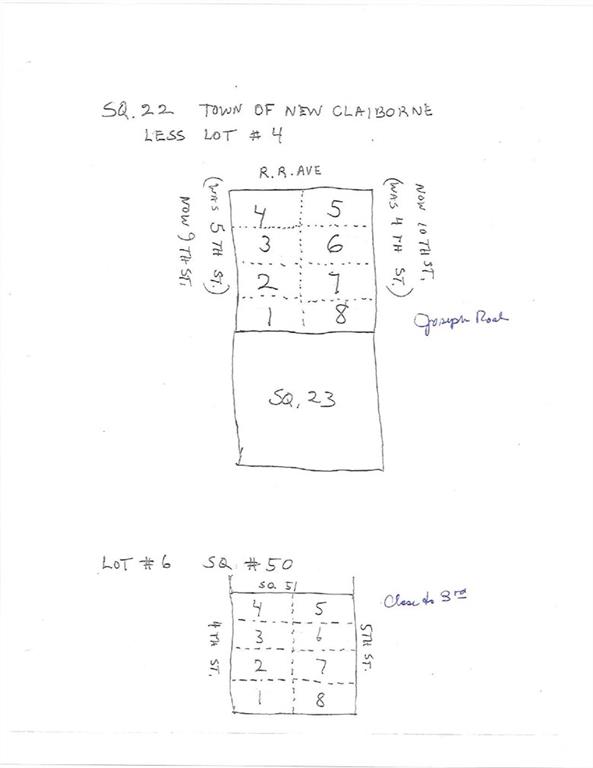 SQ. 22 TOWN OF NEW CLAIBORNE
LESS LOT # 4
R.R. AVE
NOW 9TH ST.
(WAS 5TH ST.)
4 5
3 6
2 7
1 8
(WAS 4TH ST.)
NOW 10TH ST.
Joseph Road
SQ. 23
LOT # 6 SQ. # 50
SQ 51
4TH ST.
4 5
3 6
2 7
1 8
5TH ST.
Close to 3rd